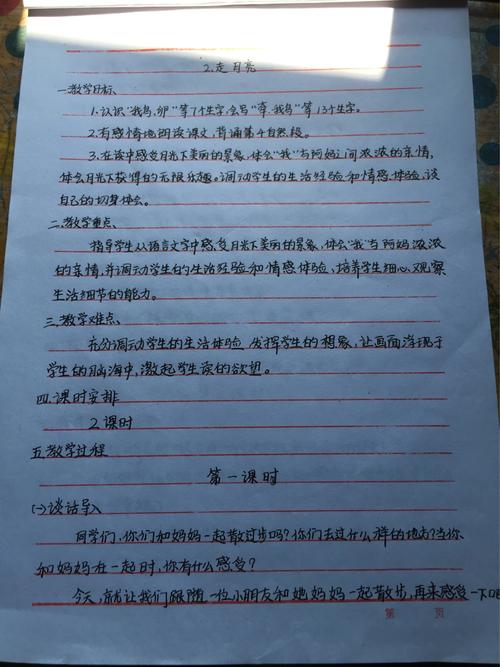 2.走月亮
一.教学目标、
1.认识"鹅、卵"等7个生字,会写"牵、鹅"等13个生字。
2.有感情地朗读课文,背诵第4自然段。
3.在读中感受月光下美丽的景象,体会"我"与阿妈之间浓浓的亲情,
体会月光下获得的无限乐趣。调动学生的生活经验和情感体验,谈
自己的切身体会。
二.教学重点、
指导学生从语言文字中感受月光下美丽的景象,体会"我"与阿妈浓浓
的亲情,并调动学生的生活经验和情感体验,培养学生细心观察
生活细节的能力。
三.教学难点、
充分调动学生的生活体验,发挥学生的想象,让画面浮现于
学生的脑海中,激起学生读的欲望。
四.课时安排
2课时
五教学过程
第一课时
(一)谈话导入
同学们,你们和妈妈一起散过步吗?你们去过什么样的地方?当你
和妈妈在一起时,你有什么感受?
今天,就让我们跟随一位小朋友和她妈妈一起散步,再来感受一下
第 页